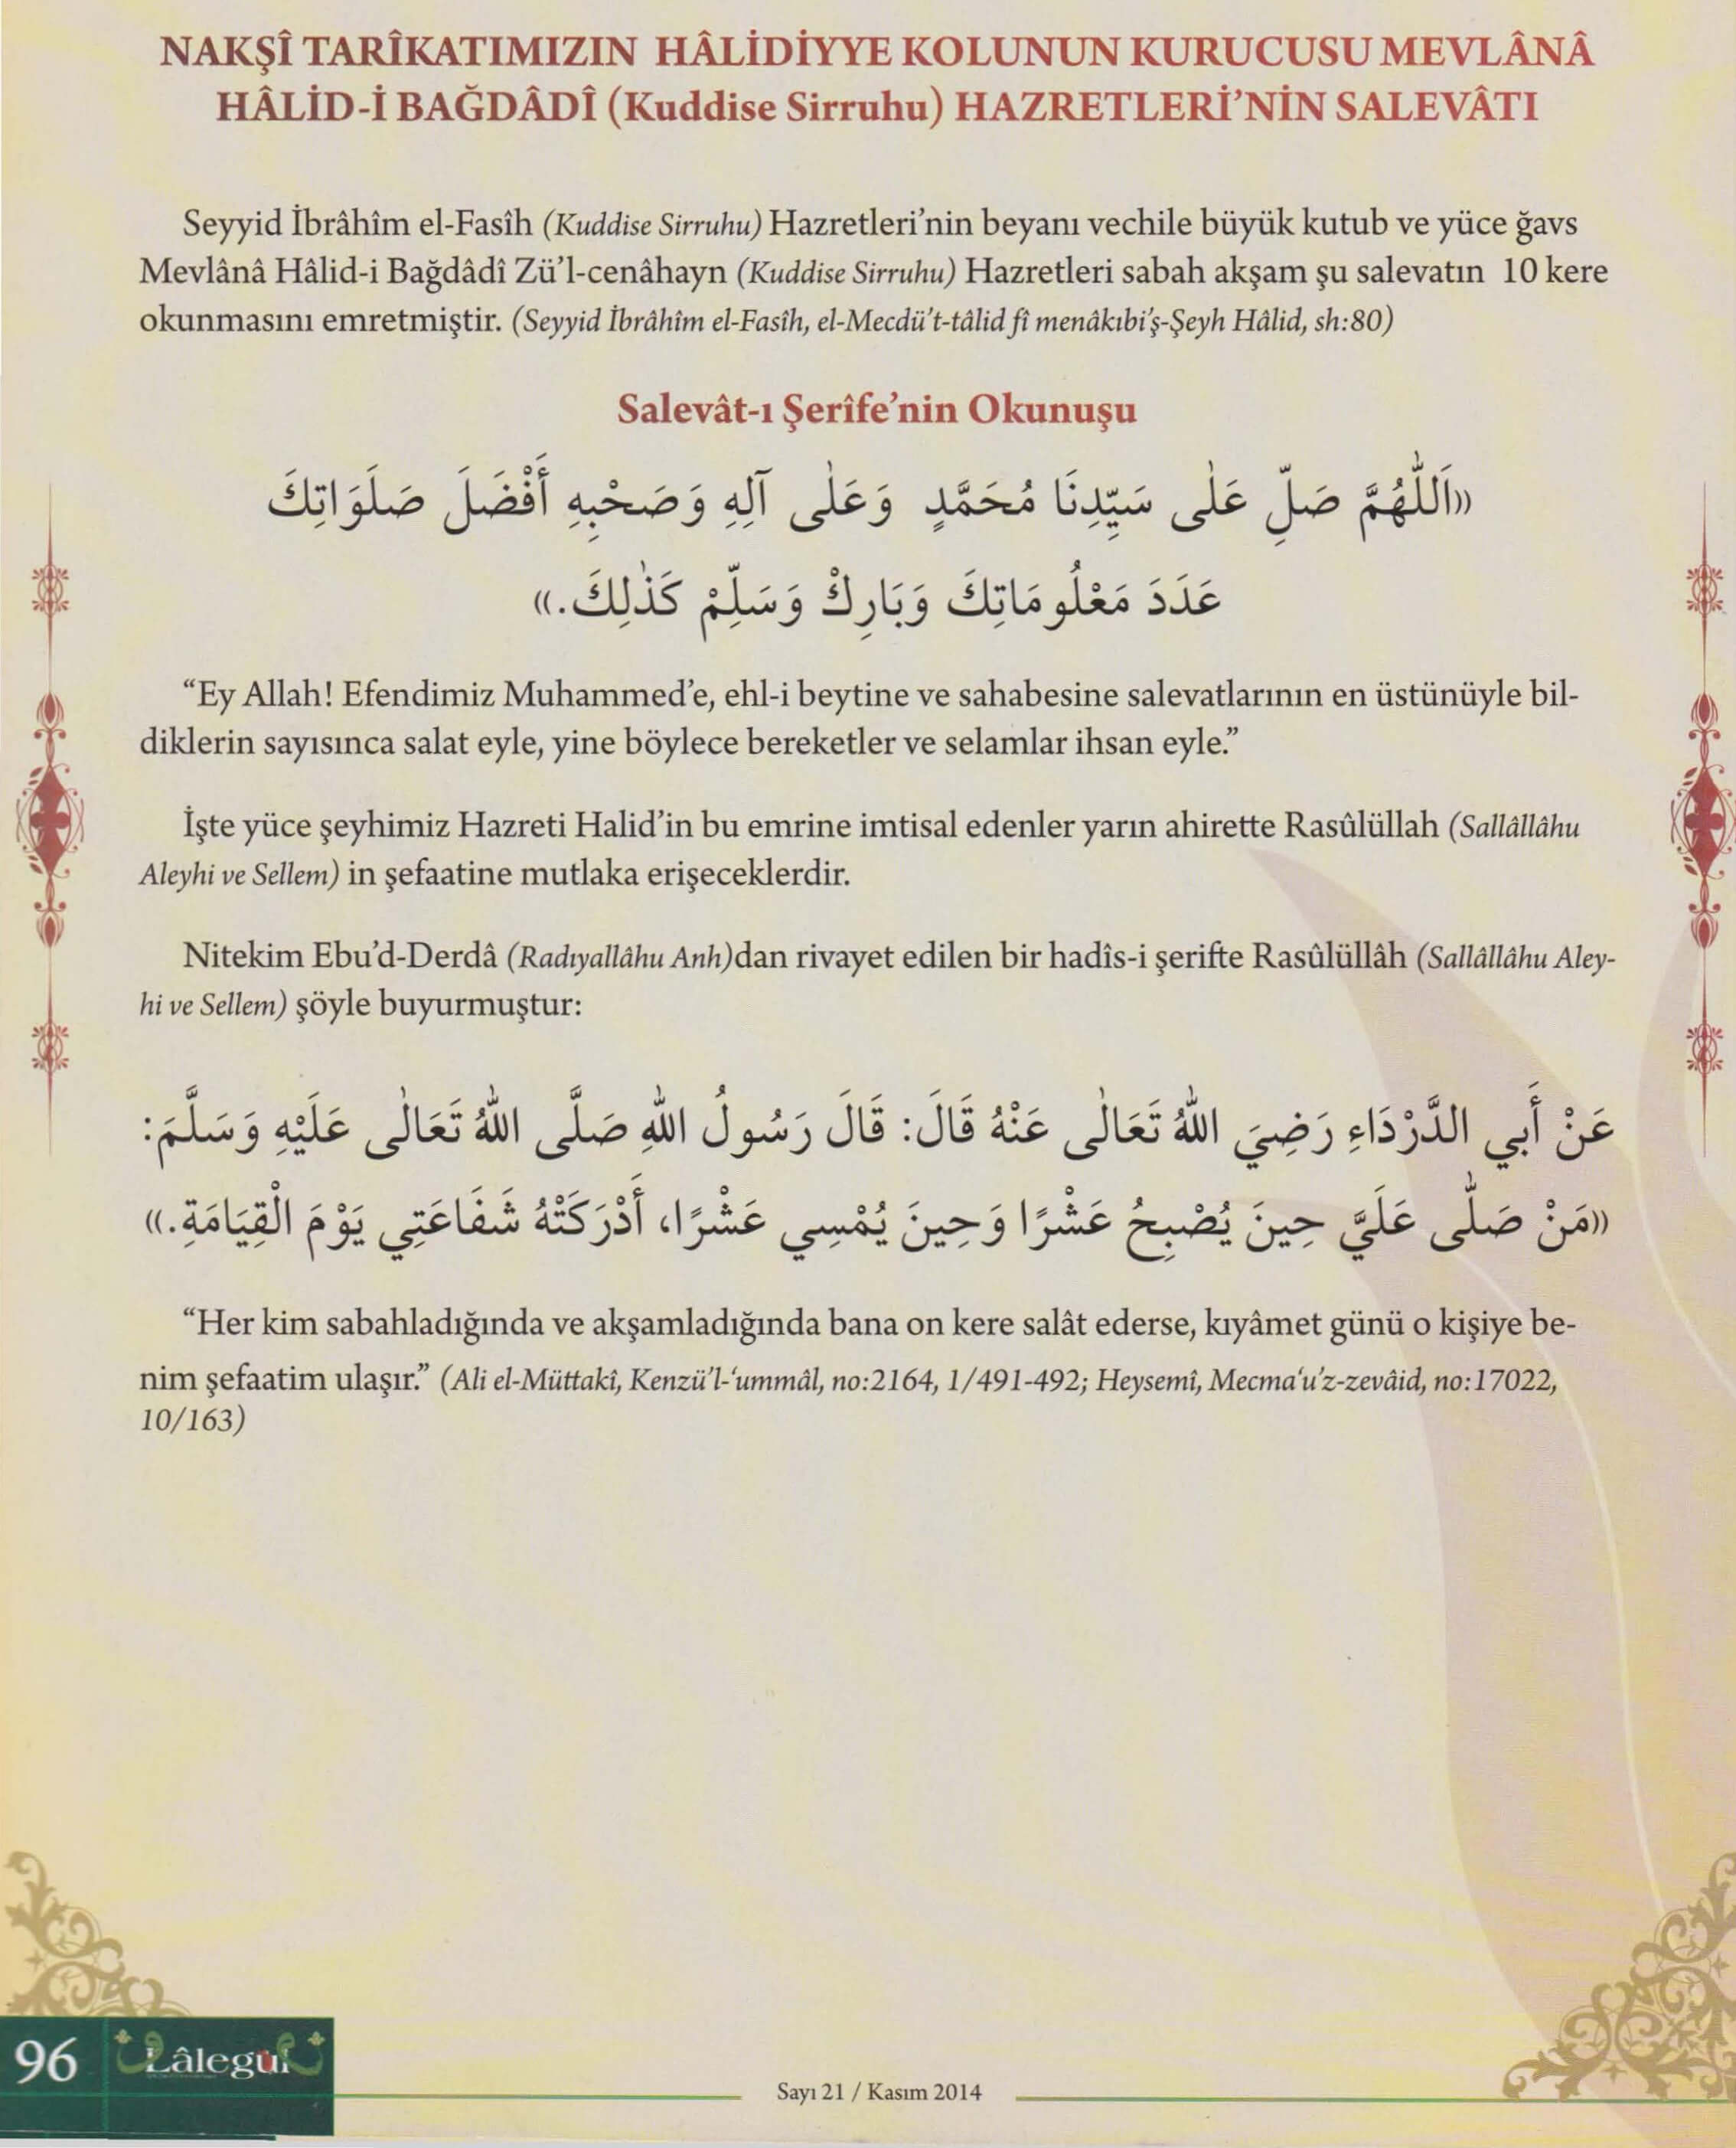 NAKŞÎ TARÎKATIMIZIN HÂLİDİYYE KOLUNUN KURUCUSU MEVLÂNÂ
HÂLİD-İ BAĞDÂDÎ (Kuddise Sirruhu) HAZRETLERİ’NİN SALEVÂTI
Seyyid İbrâhîm el-Fasîh (Kuddise Sirruhu) Hazretleri’nin beyanı vechile büyük kutub ve yüce ğavs
Mevlânâ Hâlid-i Bağdâdî Zü’l-cenâhayn (Kuddise Sirruhu) Hazretleri sabah akşam şu salevatın 10 kere
okunmasını emretmiştir. (Seyyid İbrâhîm el-Fasîh, el-Mecdü’t-tâlid fî menâkıbi’ş-Şeyh Hâlid, sh:80)
Salevât-ı Şerîfe’nin Okunuşu
«اَللّٰهُمَّ صَلِّ عَلٰى سَيِّدِنَا مُحَمَّدٍ وَعَلٰى آلِهِ وَصَحْبِهِ أَفْضَلَ صَلَوَاتِكَ
عَدَدَ مَعْلُومَاتِكَ وَبَارِكْ وَسَلِّمْ كَذٰلِكَ.»
“Ey Allah! Efendimiz Muhammed’e, ehl-i beytine ve sahabesine salevatlarının en üstünüyle bil-
diklerin sayısınca salat eyle, yine böylece bereketler ve selamlar ihsan eyle.”
İşte yüce şeyhimiz Hazreti Halid’in bu emrine imtisal edenler yarın ahirette Rasûlüllah (Sallâllâhu
Aleyhi ve Sellem) in şefaatine mutlaka erişeceklerdir.
Nitekim Ebu’d-Derdâ (Radıyallâhu Anh)dan rivayet edilen bir hadîs-i şerifte Rasûlüllâh (Sallâllâhu Aley-
hi ve Sellem) şöyle buyurmuştur:
عَنْ أَبِي الدَّرْدَاءِ رَضِيَ اللّٰهُ تَعَالٰى عَنْهُ قَالَ: قَالَ رَسُولُ اللّٰهِ صَلَّى اللّٰهُ تَعَالٰى عَلَيْهِ وَسَلَّمَ:
«مَنْ صَلّٰى عَلَيَّ حِينَ يُصْبِحُ عَشْرًا وَحِينَ يُمْسِي عَشْرًا، أَدْرَكَتْهُ شَفَاعَتِي يَوْمَ الْقِيَامَةِ.»
“Her kim sabahladığında ve akşamladığında bana on kere salât ederse, kıyâmet günü o kişiye be-
nim şefaatim ulaşır.” (Ali el-Müttakî, Kenzü’l-‘ummâl, no:2164, 1/491-492; Heysemî, Mecma‘u’z-zevâid, no:17022,
10/163)
96 Lâlegül
Sayı 21 / Kasım 2014